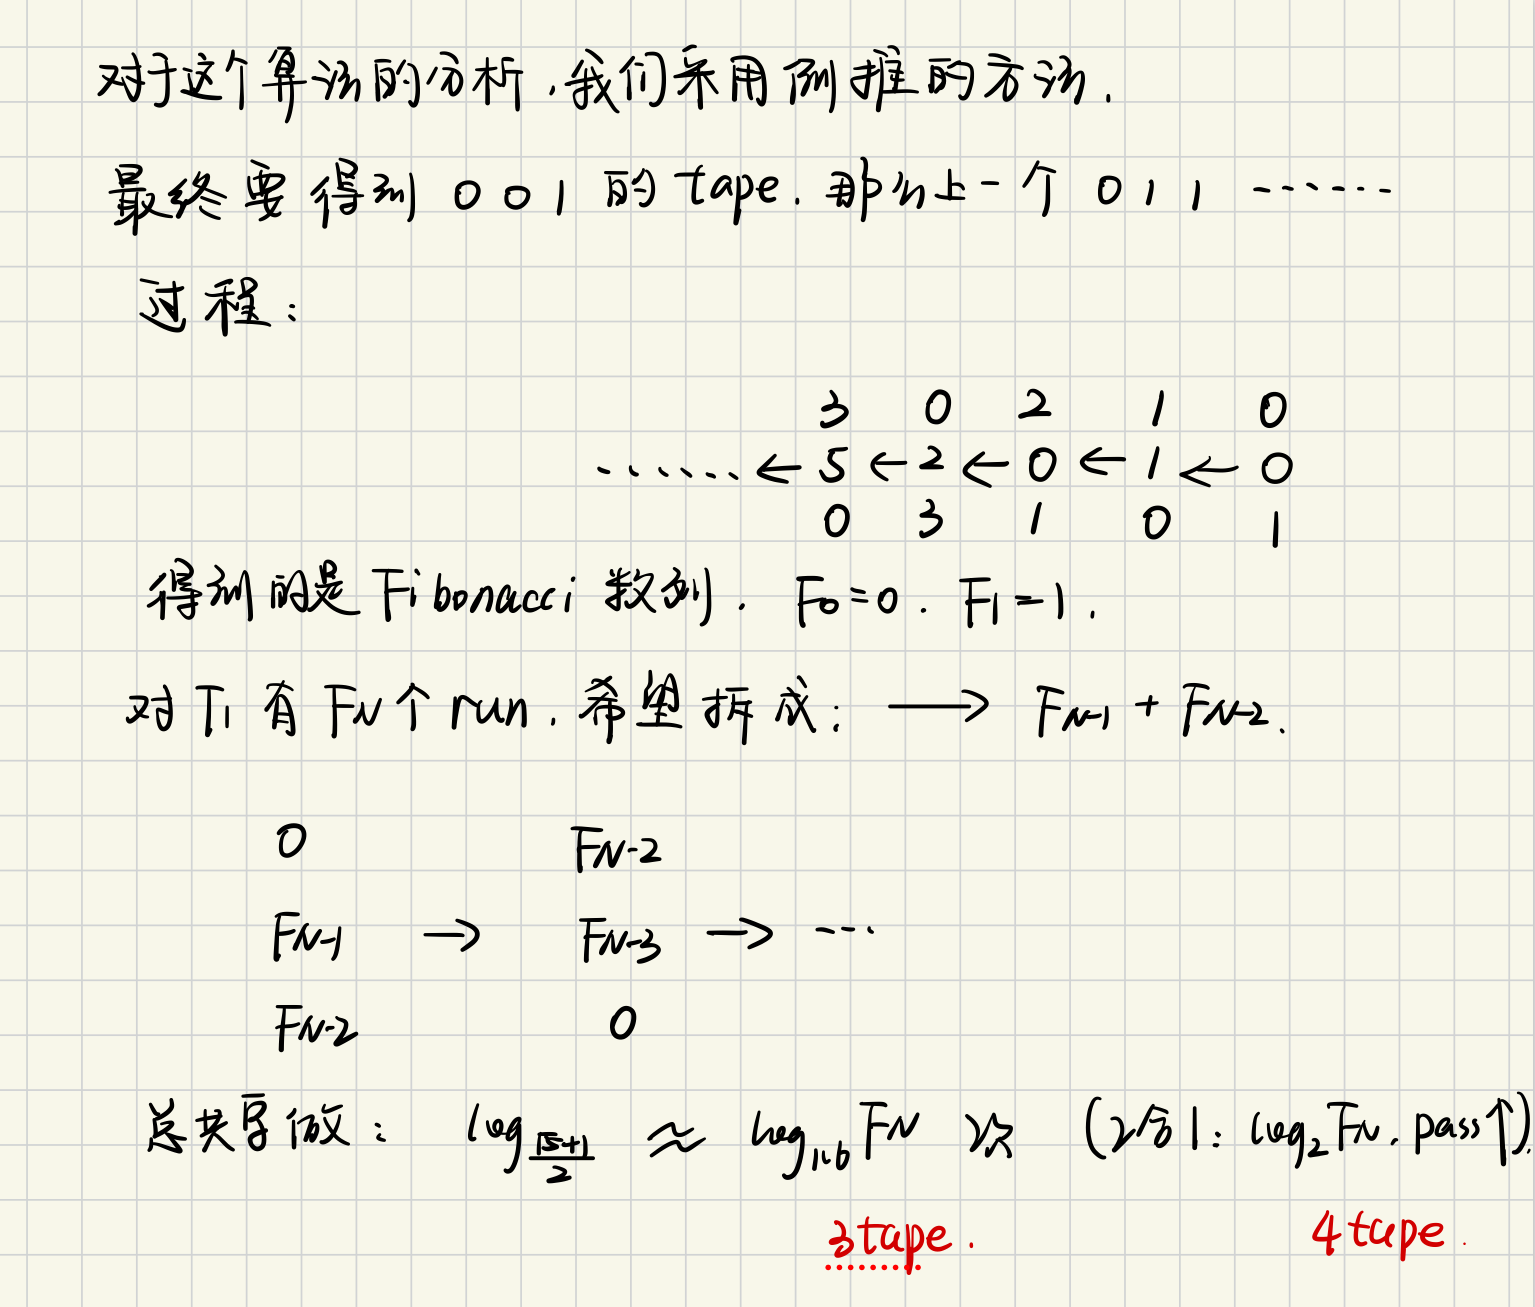 对于这个算法的分析,我们采用倒推的方法.
最终要得到 0 0 1 的 tape. 那么上一个 0 1 1 ……
过程:
3 0 2 1 0
…… ← 5 ← 2 ← 0 ← 1 ← 0
0 3 1 0 1
得到的是 Fibonacci 数列. F0=0. F1=1.
对 T1 有 FN 个 run, 希望拆成: → FN-1 + FN-2.
0 FN-2
FN-1 → FN-3 → …
FN-2 0
总共要做: log (√5+1)/2 ≈ log1.6 FN 次 (2合1: log2 FN. pass↑).
3tape. 4tape.